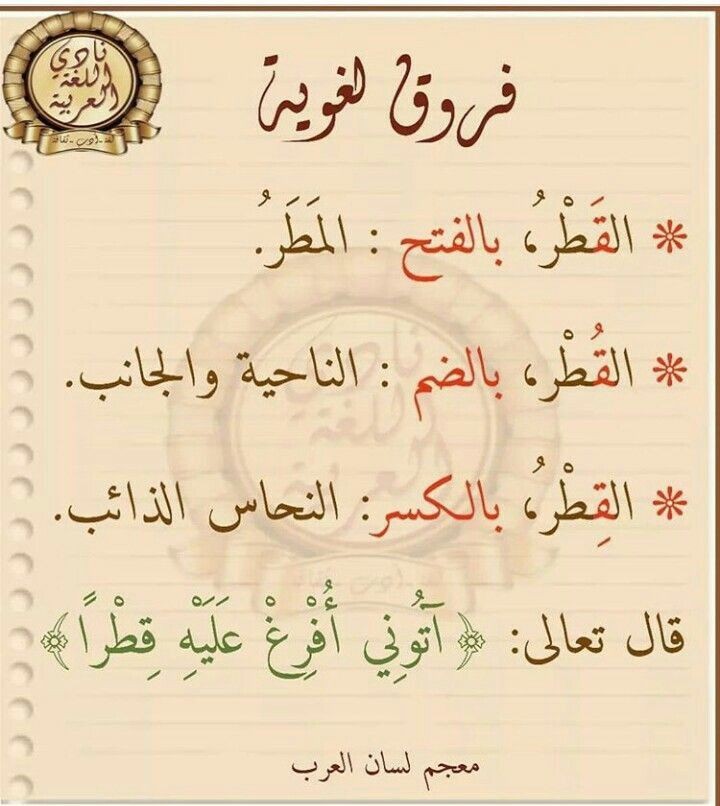 نادي
اللغة
العربية
لغة - أدب - ثقافة
فروق لغوية
❊ القَطْرُ، بالفتح : المَطَرُ.
❊ القُطْر، بالضم : الناحية والجانب.
❊ القِطْرُ، بالكسر: النحاس الذائب.
قال تعالى: ﴿ آتُونِي أُفْرِغْ عَلَيْهِ قِطْرًا ﴾
معجم لسان العرب